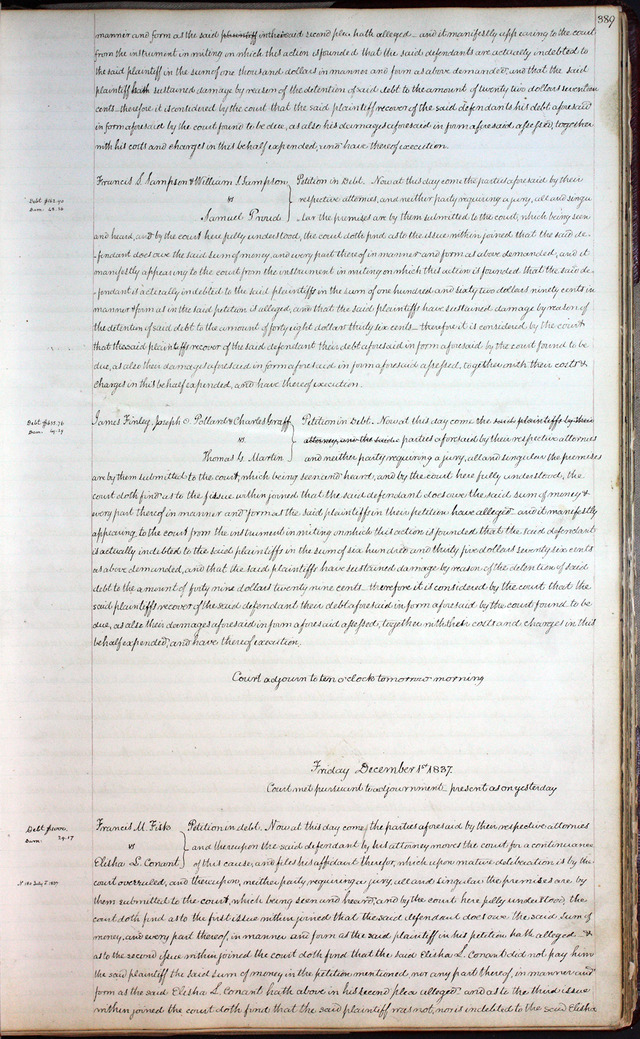 389
manner and form as the said plaintiff in their said second plea hath alleged and it manifestly appearing to the court
from the instrument in writing in which this action is founded that the said defendants are actually indebted to
the said plaintiff in the sum of one thousand dollars in manner and form as above demanded, and that the said
plaintiff hath sustained damage by reason of the detention of said debt to the amount of twenty two dollars seventeen
cents therefore it is considered by the court that the said plaintiff recover of the said defendants his debt aforesaid
in form aforesaid by the court found to be due, as also his damages aforesaid in form aforesaid assessed, together
with his costs and charges in this behalf expended, and have thereof execution.
Francis S. Sampson & William S. Sampson
vs
Samuel Proud
Debt $162.90
Dam. 48.36
Petition in Debt. Now at this day come the parties aforesaid by their
respective attornies, and neither party requiring a jury, all and singu-
-lar the premises are by them submitted to the court, which being seen
and heard, and by the court here fully understood, the court doth find as to the issue within joined that the said de-
-fendant does owe the said sum of money, and every part thereof in manner and form as above demanded, and it
manifestly appearing to the court from the instrument in writing on which this action is founded that the said de-
-fendant is actually indebted to the said plaintiffs in the sum of one hundred and sixty two dollars ninety cents in
manner & form as in the said petition is alleged, and that the said plaintiffs have sustained damage by reason of
the detention of said debt to the amount of forty eight dollars thirty six cents therefore it is considered by the court
that the said plaintiffs recover of the said defendant their debt aforesaid in form aforesaid by the court found to be
due, as also their damages aforesaid in form aforesaid in form aforesaid assessed, together with their costs &
charges in this behalf expended, and have thereof execution
James Finley, Joseph O. Pollard & Charles Graff
vs
Thomas G. Martin
Debt $635.76
Dam. 49.29
Petition in Debt. Now at this day come the said plaintiffs by their
attorney, and the said parties aforesaid by their respective attornies
and neither party requiring a jury, all and singular the premises
are by them submitted to the court, which being seen and heard, and by the court here fully understood, the
court doth find as to the issue within joined that the said defendant does owe the said sum of money &
every part thereof in manner and form as the said plaintiffs in their petition have alleged and it manifestly
appearing to the court from the instrument in writing on which this action is founded that the said defendant
is actually indebted to the said plaintiffs in the sum of six hundred and thirty five dollars seventy six cents
as above demanded, and that the said plaintiffs have sustained damage by reason of the detention of said
debt to the amount of forty nine dollars twenty nine cents therefore it is considered by the court that the
said plaintiffs recover of the said defendant their debt aforesaid in form aforesaid by the court found to be
due, as also their damages aforesaid in form aforesaid assessed, together with their costs and charges in this
behalf expended, and have thereof execution.
Court adjourn to ten o'clock tomorrow morning
Friday December 1st 1837.
Court met pursuant to adjournment present as on yesterday
Francis M. Fisk
vs
Elisha L. Conant
Dam. 24.17
Petition in debt. Now at this day come the parties aforesaid by their respective attornies
and thereupon the said defendant by his attorney moves the court for a continuance
of this cause, and files his affidavit therefor, which upon mature deliberation is by the
court overruled, and thereupon, neither party requiring a jury, all and singular the premises are by
them submitted to the court, which being seen and heard, and by the court here fully understood, the
court doth find as to the first issue within joined that the said defendant does owe the said sum of
money, and every part thereof, in manner and form as the said plaintiff in his petition hath alleged &
as to the second issue within joined the court doth find that the said Elisha L. Conant did not pay him
the said plaintiff the said sum of money in the petition mentioned nor any part thereof, in manner and
form as the said Elisha L. Conant hath above in his second plea alleged and as to the third issue
within joined the court doth find that the said plaintiff was not, nor is indebted to the said Elisha